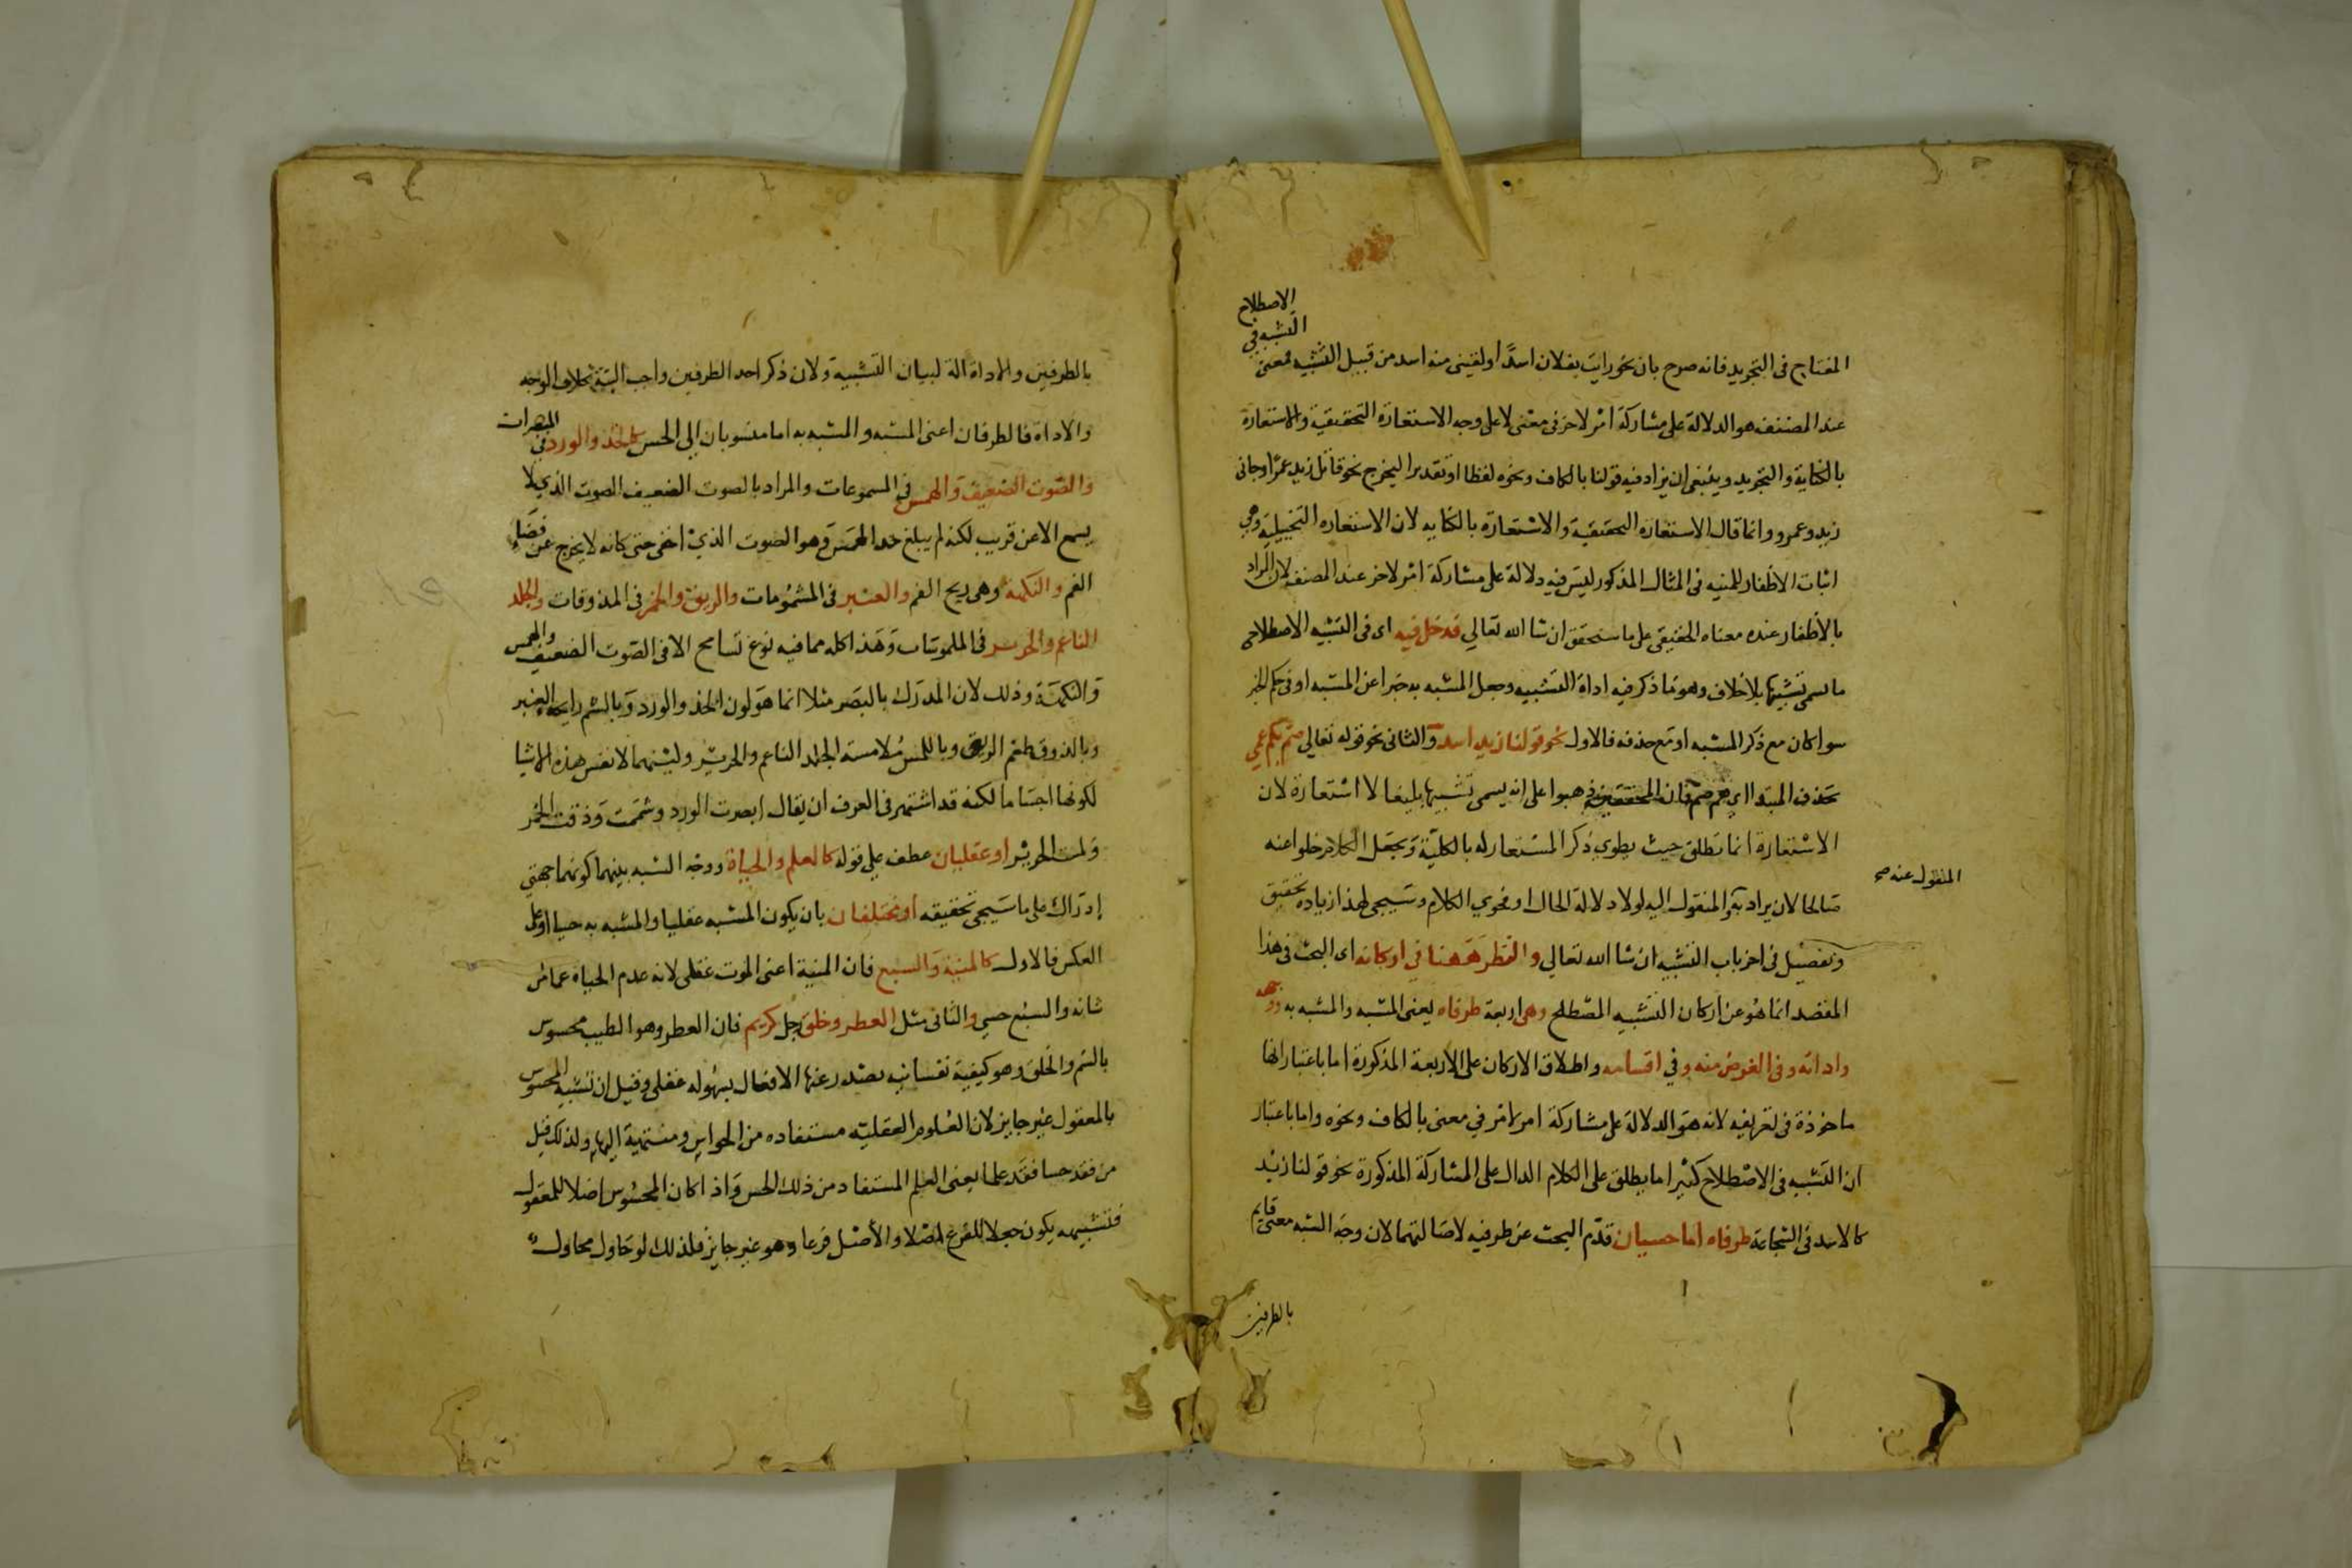 المفتاح فى التجريد فانه صرح بان نحو رايت بفلان اسدًا او لقينى منه اسد من قبيل التشبيه فمعنى التشبيه فى الاصطلاح
عند المصنف هو الدلالة على مشاركة امر لاخر فى معنى لا على وجه الاستعارة التحقيقية والاستعارة
بالكناية والتجريد وينبغى ان يزاد فيه قولنا بالكاف ونحوه لفظا او تقديرا ليخرج نحو قاتل زيد عمرًا وجانى
زيد وعمرو وانما قال الاستعاره التحقيقية والاستعارة بالكنايه لان الاستعاره التخييلية وهى
اثبات الاظفار للمنيه فى المثال المذكور ليس فيه دلالة على مشاركة امر لاخر عند المصنف لان المراد
بالاظفار عنده معناه الحقيقى على ما سنحقق ان شا الله تعالي فدخل فيه اى فى التشبيه الاصطلاحى
ما يسمى تشبيها بلا خلاف وهو ما ذكر فيه اداة التشبيه وجعل المشبه به خبرا عن المشبه او فى حكم الخبر
سوا كان مع ذكر المشبه او مع حذفه فالاول نحو قولنا زيد اسد والثانى نحو قوله تعالي صم بكم عمي
بحذف المبتدا اي هم صم فان المحققين ذهبوا على انه يسمى تشبيها بليغا لا استعارة لان
الاستعارة انما تطلق حيث يطوي ذكر المستعار له بالكلية ويجعل الكلام خلوا عنه
صالحا لان يراد به والمنقول اليه لولا دلالة الحال او فحوي الكلام وسيجى لهذا زيادة تحقيق
المنقول عنه صح
وتفصيل فى اخر باب التشبيه ان شا الله تعالي والنظر ههنا فى اركانه اى البحث فى هذا
المقصد انما هو عن اركان التشبيه المصطلح وهى اربعة طرفاه يعنى المشبه والمشبه به ووجهه
واداته وفى الغرض منه وفي اقسامه واطلاق الاركان على الاربعة المذكورة اما باعتبار انها
ماخوذة فى تعريفه لانه هو الدلالة على مشاركة امر لامر في معنى بالكاف ونحوه واما باعتبار
ان التشبيه فى الاصطلاح كثيرا ما يطلق على الكلام الدال على المشاركة المذكورة نحو قولنا زيد
كالاسد فى الشجاعة طرفاه اما حسيان قدم البحث عن طرفيه لاصالتهما لان وجه الشبه معنى قايم
بالطرفين
بالطرفين والاداة الة لبيان التشبيه ولان ذكر احد الطرفين واجب البتة بخلاف الوجه
والاداة فالطرفان اعنى المشبه والمشبه به اما منسوبان الى الحس كالخد والورد فى المبصرات
والصوت الضعيف والهمس فى المسموعات والمراد بالصوت الضعيف الصوت الذي لا
يسمع الا عن قريب لكنه لم يبلغ حد الهمس وهو الصوت الذي اخفى حتى كانه لا يخرج عن فضاء
الفم والنكهة وهى ريح الفم والعنبر فى المشمومات والريق والخمر فى المذوقات والجلد
الناعم والحرير فى الملموسات وهذا كله مما فيه نوع تسامح الا فى الصوت الضعيف والهمس
والنكهة وذلك لان المدرك بالبصر مثلا انما هو لون الخد والورد وبالشم رايحة العنبر
وبالذوق طعم الريق وباللمس ملامسة الجلد الناعم والحرير ولينهما لا نفس هذه الاشيا
لكونها اجساما لكنه قد اشتهر فى العرف ان يقال ابصرت الورد وشممت وذقت الخمر
ولمست الحرير او عقليان عطف على قوله كالعلم والحياة ووجه الشبه بينهما كونهما جهتى
إدراك على ما سيجى تحقيقه او مختلفان بان يكون المشبه عقليا والمشبه به حسيا او على
العكس فالاول كالمنية والسبع فان المنية اعنى الموت عقلى لانه عدم الحياة عما من
شانه والسبع حسي والثانى مثل العطر وخلق رجل كريم فان العطر وهو الطيب محسوس
بالشم والخلق وهو كيفية نفسانيه يصدر عنها الافعال بسهوله عقلى وقيل ان تشبيه المحسوس
بالمعقول غير جايز لان العلوم العقليه مستفاده من الحواس ومنتهية اليها ولذلك قيل
من فقد حسا فقد علما يعنى العلم المستفاد من ذلك الحس واذا كان المحسوس اصلا للمعقول
فتشبيهه يكون جعلا للفرع اصلا والأصل فرعا وهو غير جايز فلذلك لو حاول محاول